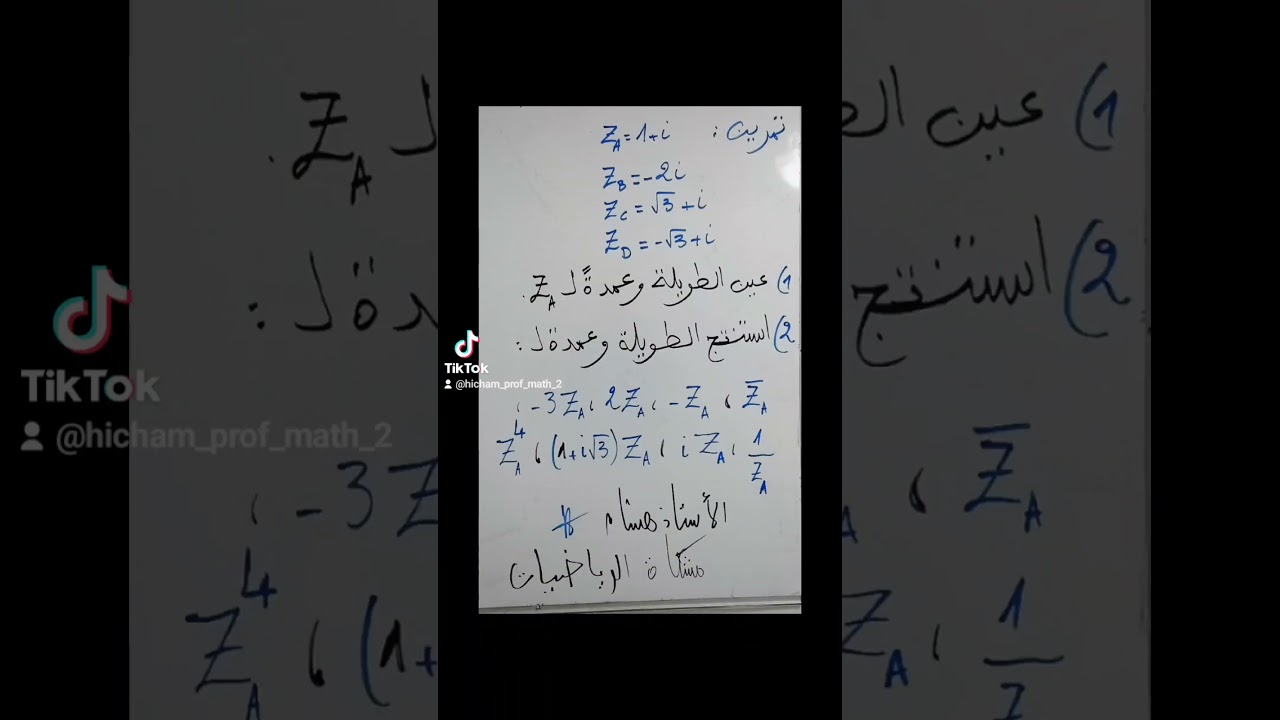 تمرين : Z_A = 1+i
Z_B = -2i
Z_C = √3 + i
Z_D = -√3 + i
1) عين الطويلة وعمدةً لـ Z_A.
2) استنتج الطويلة وعمدة لـ :
Z̅_A ، -Z_A ، 2Z_A ، -3Z_A ،
1/Z_A ، i Z_A ، (1+i√3) Z_A ، Z_A^4
الأستاذ هشام
مشكاة الرياضيات
TikTok
@hicham_prof_math_2